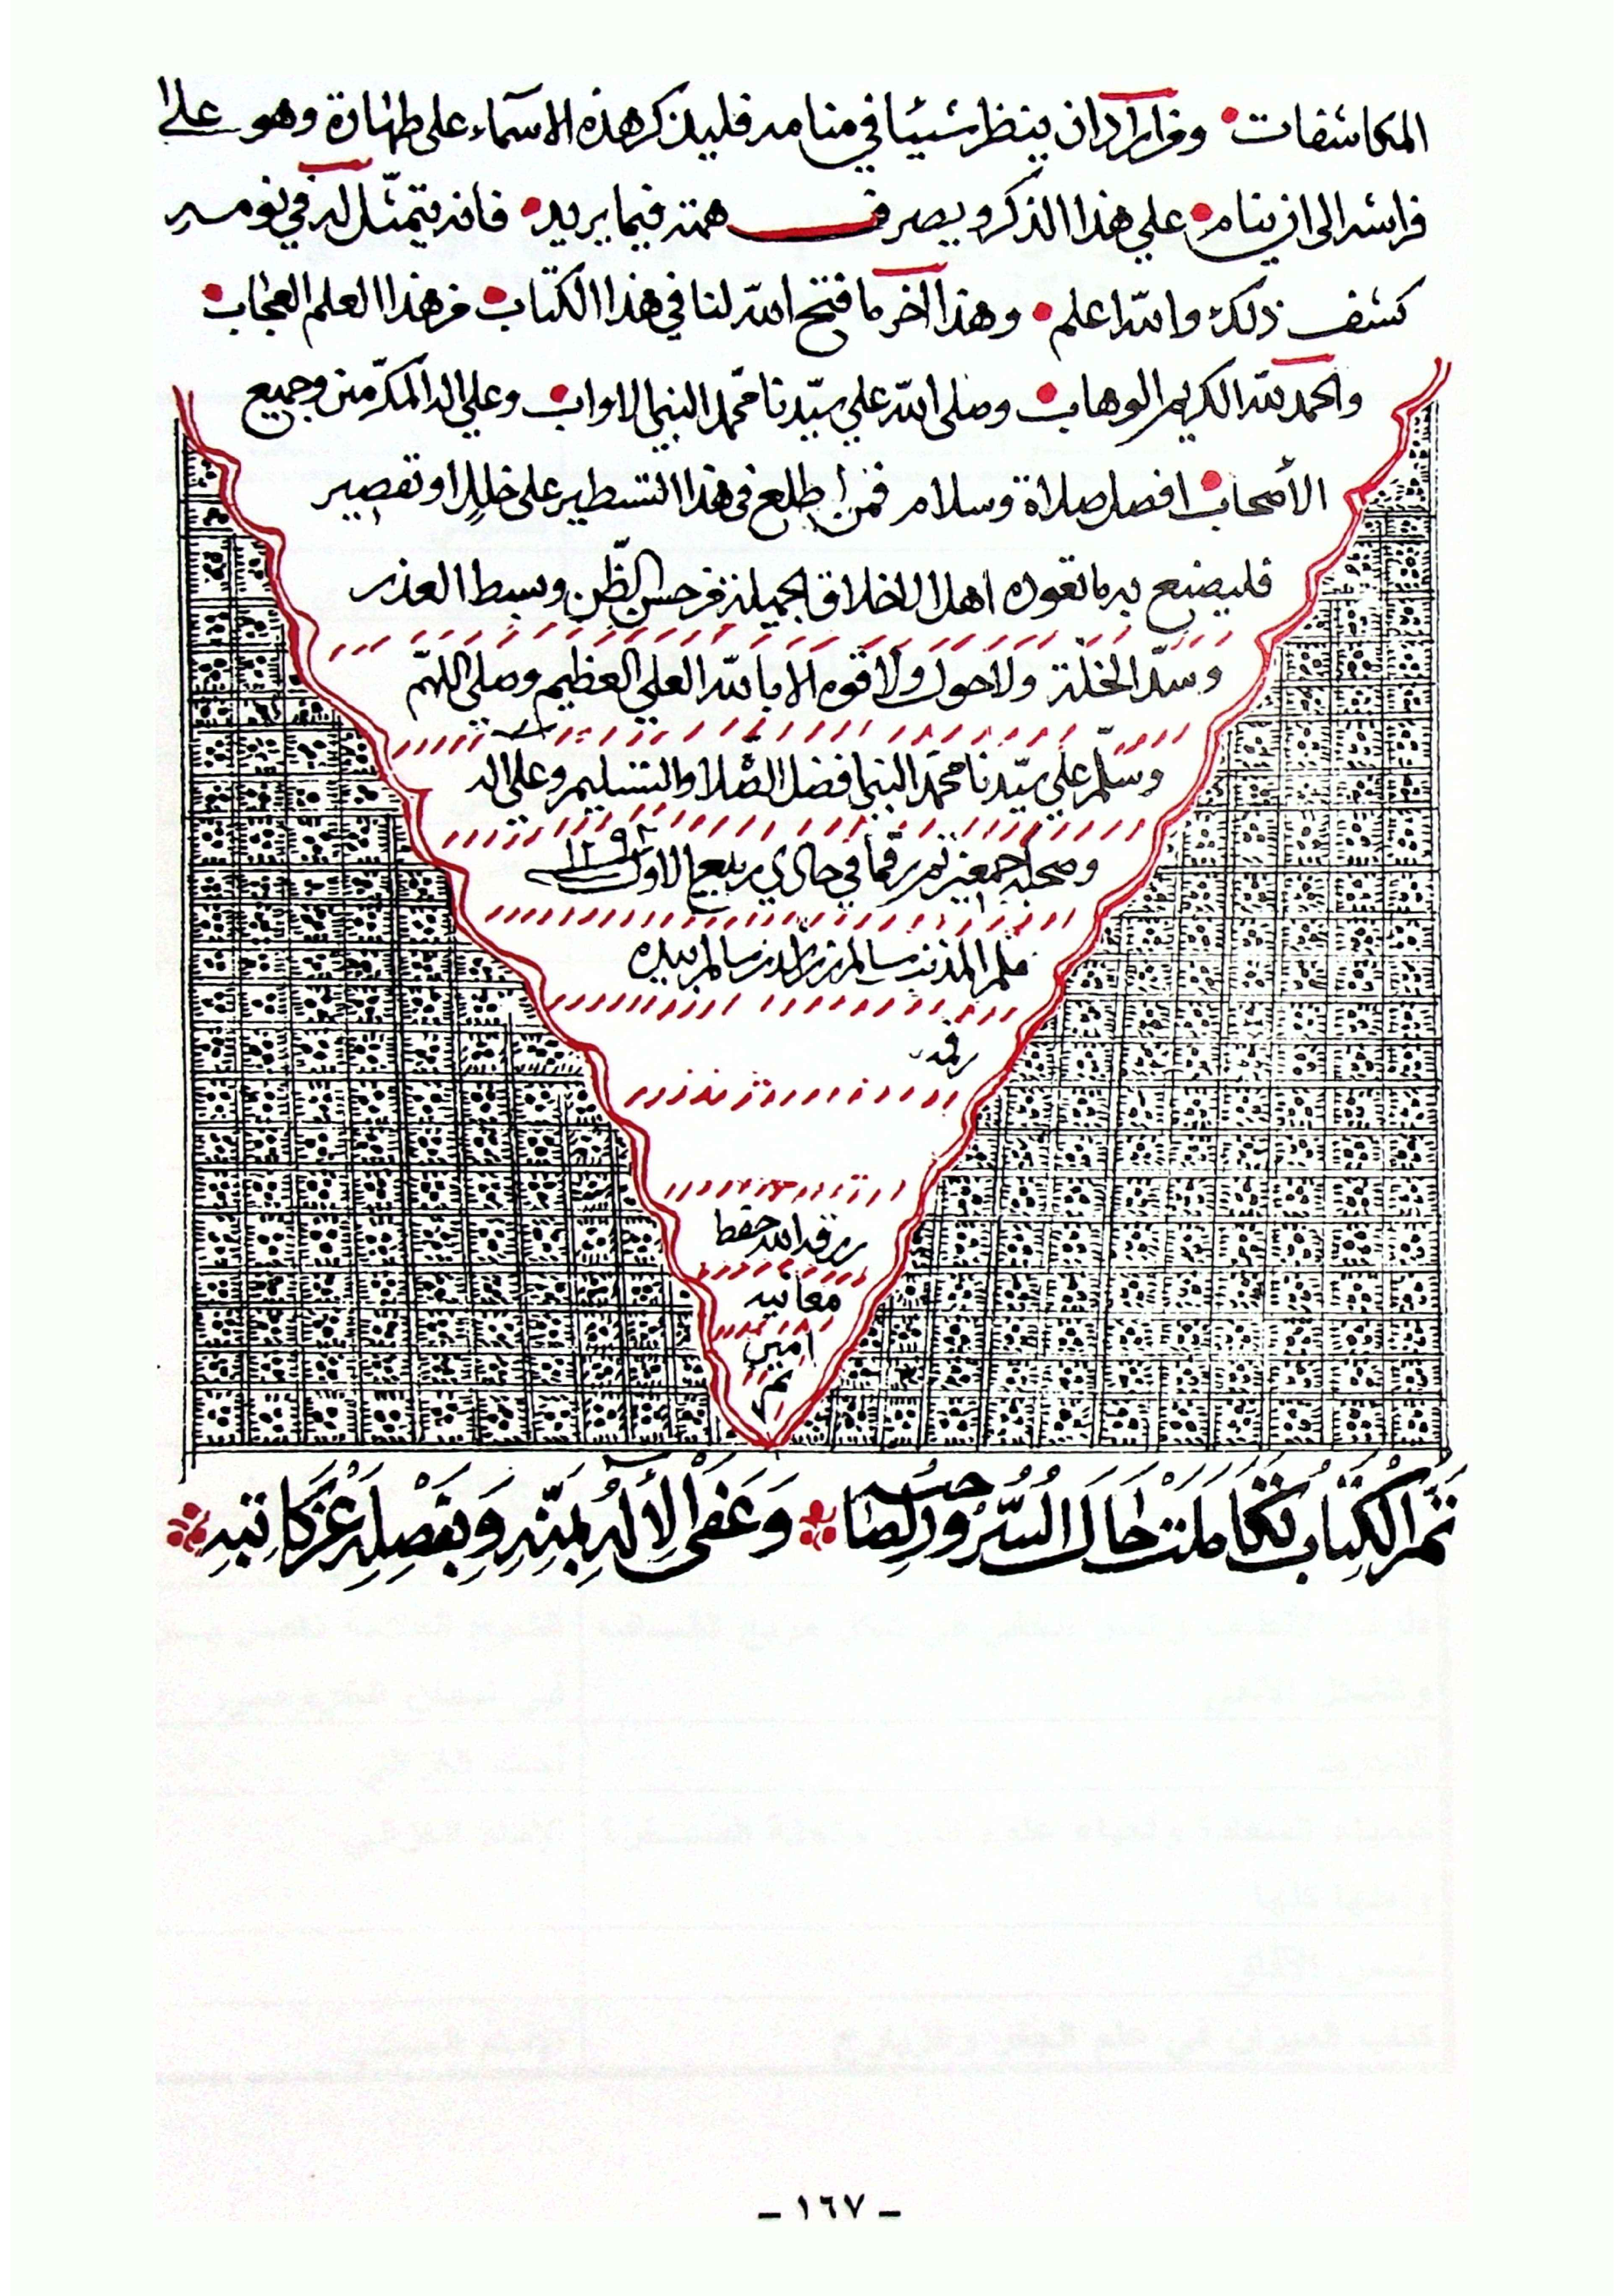 المكاشفات ومن اراد ان ينظر شيئا في منامه فليذكر هذه الاسماء على طهارة وهو على
فراشه الى ان ينام على هذا الذكر ويصرف همته فيما يريد فانه يتمثل له في نومه
كشف ذلك والله اعلم وهذا آخر ما فتح الله لنا في هذا الكتاب من هذا العلم العجاب
والحمد لله الكريم الوهاب وصلى الله على سيّدنا محمّد النبي الاواب وعلى اله المكرّمين وجميع
الأصحاب افضل صلاة وسلام فمن اطلع في هذا التسطير على خلل او تقصير
فليصنع به ما تعوده اهل الاخلاق الجميلة من حسن الظّن وبسط العذر
وسدّ الخلّة ولا حول ولا قوه الا بالله العلي العظيم وصلى اللهّم
وسلّم على سيّدنا محمّد النبي افضل الصّلاة والتسليم وعلى اله
وصحبه اجمعين تم رقما في ربيع الاول
المذنب سالم بن سالم بيده
رزقه الله حفظ
معانيه
امين
تم
تَمَّ الْكِتَابُ تَكَامَلَتْ حَالَ السُّرُورِ لِصَاحِبِه وَعَفَى الْإِلَهُ بِمَنِّهِ وَبِفَضْلِهِ عَنْ كَاتِبِهِ
- ١٦٧ -